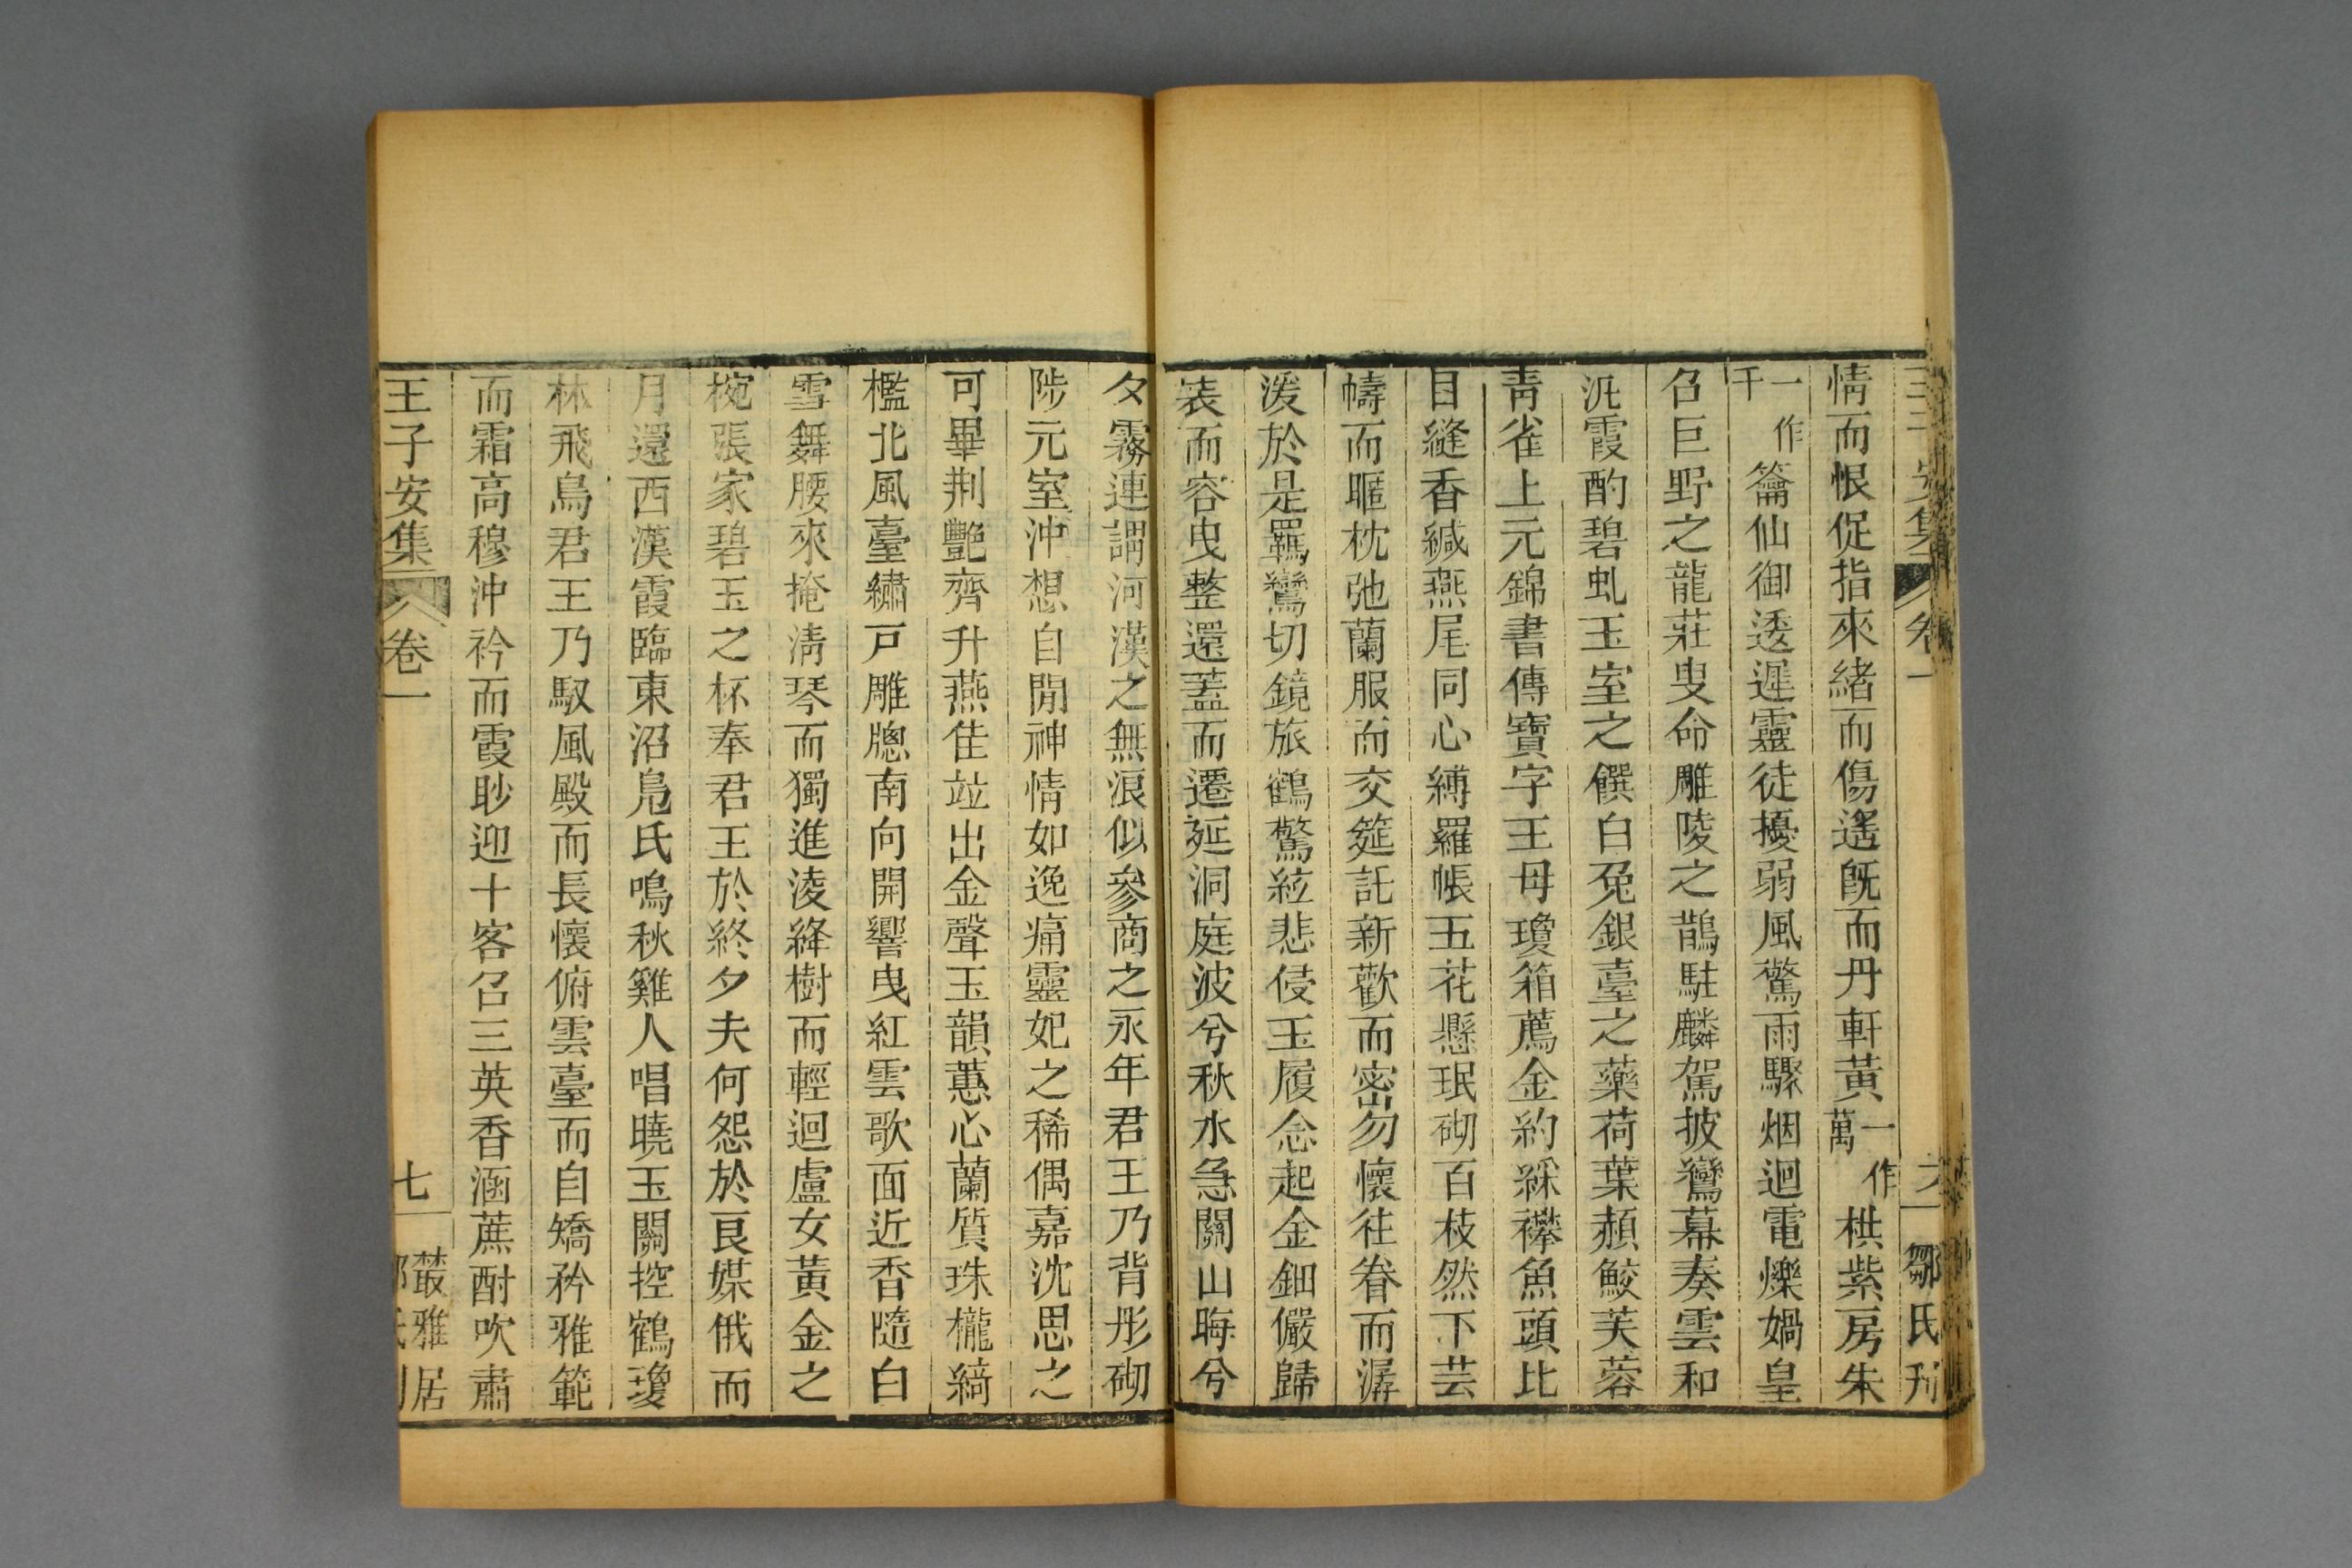 情而恨促指來緒而傷遙旣而丹軒黃一作萬栱紫房朱
一作千籥仙御逶遲靈徒擾弱風驚雨驟烟迴電爍媧皇
召巨野之龍莊叟命雕陵之鵲駐麟駕披鸞幕奏雲和
泛霞酌碧虬玉室之饌白兔銀臺之藥荷葉頳鮫芙蓉
青雀上元錦書傳寶字王母瓊箱薦金約綵襻魚頭比
目縫香緘燕尾同心縛羅帳五花懸珉砌百枝然下芸
幬而暱枕弛蘭服而交筵託新歡而密勿懷往眷而潺
湲於是羈鸞切鏡旅鶴驚絃悲侵玉履念起金鈿儼歸
裝而容曳整還蓋而遷延洞庭波兮秋水急關山晦兮
夕霧連謂河漢之無浪似參商之永年君王乃背彤砌
陟元室沖想自閒神情如逸痛靈妃之稀偶嘉沈思之
可畢荆艷齊升燕佳竝出金聲玉韻蕙心蘭質珠櫳綺
檻北風臺繡戸雕牕南向開響曳紅雲歌面近香隨白
雪舞腰來掩淸琴而獨進淩絳樹而輕迴盧女黃金之
椀張家碧玉之杯奉君王於終夕夫何怨於良媒俄而
月還西漢霞臨東沼鳧氏鳴秋雞人唱曉玉關控鶴瓊
林飛鳥君王乃馭風殿而長懷俯雲臺而自矯矜雅範
而霜高穆沖衿而霞眇迎十客召三英香涵蔗酎吹肅
王子安集 卷一 七 叢雅居